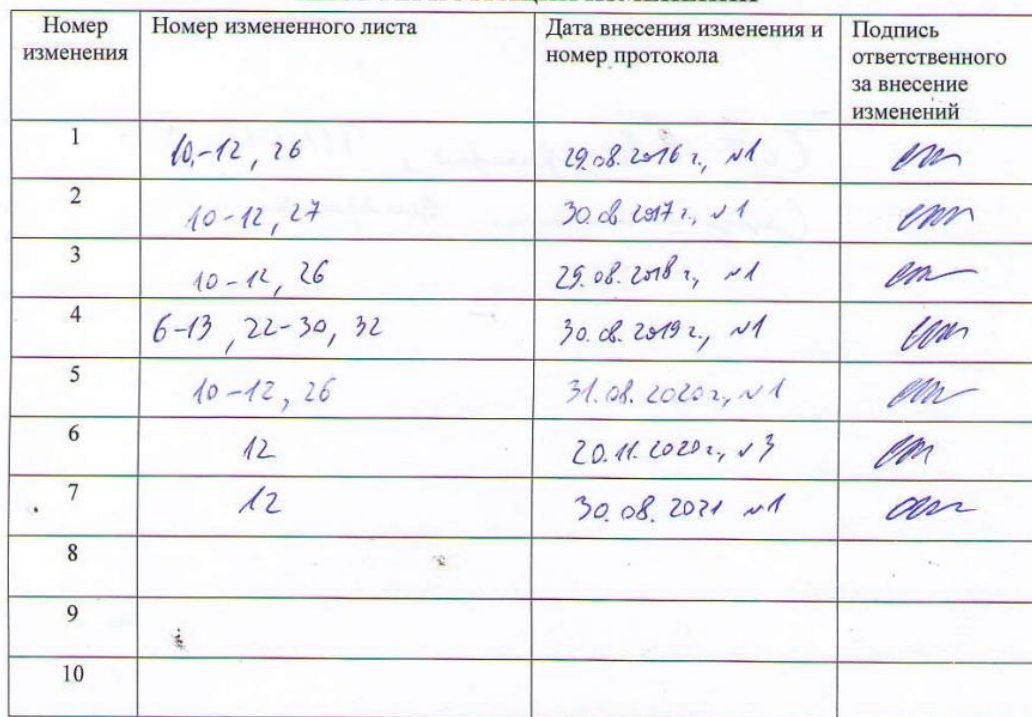 Номер изменения | Номер измененного листа | Дата внесения изменения и номер протокола | Подпись ответственного за внесение изменений
1 | 10,-12, 26 | 29.08.2016 г., №1
2 | 10-12, 27 | 30.08.2017 г., №1
3 | 10-12, 26 | 29.08.2018 г., №1
4 | 6-13, 22-30, 32 | 30.08.2019 г., №1
5 | 10-12, 26 | 31.08.2020 г., №1
6 | 12 | 20.11.2020 г., №3
7 | 12 | 30.08.2021 №1
8
9
10